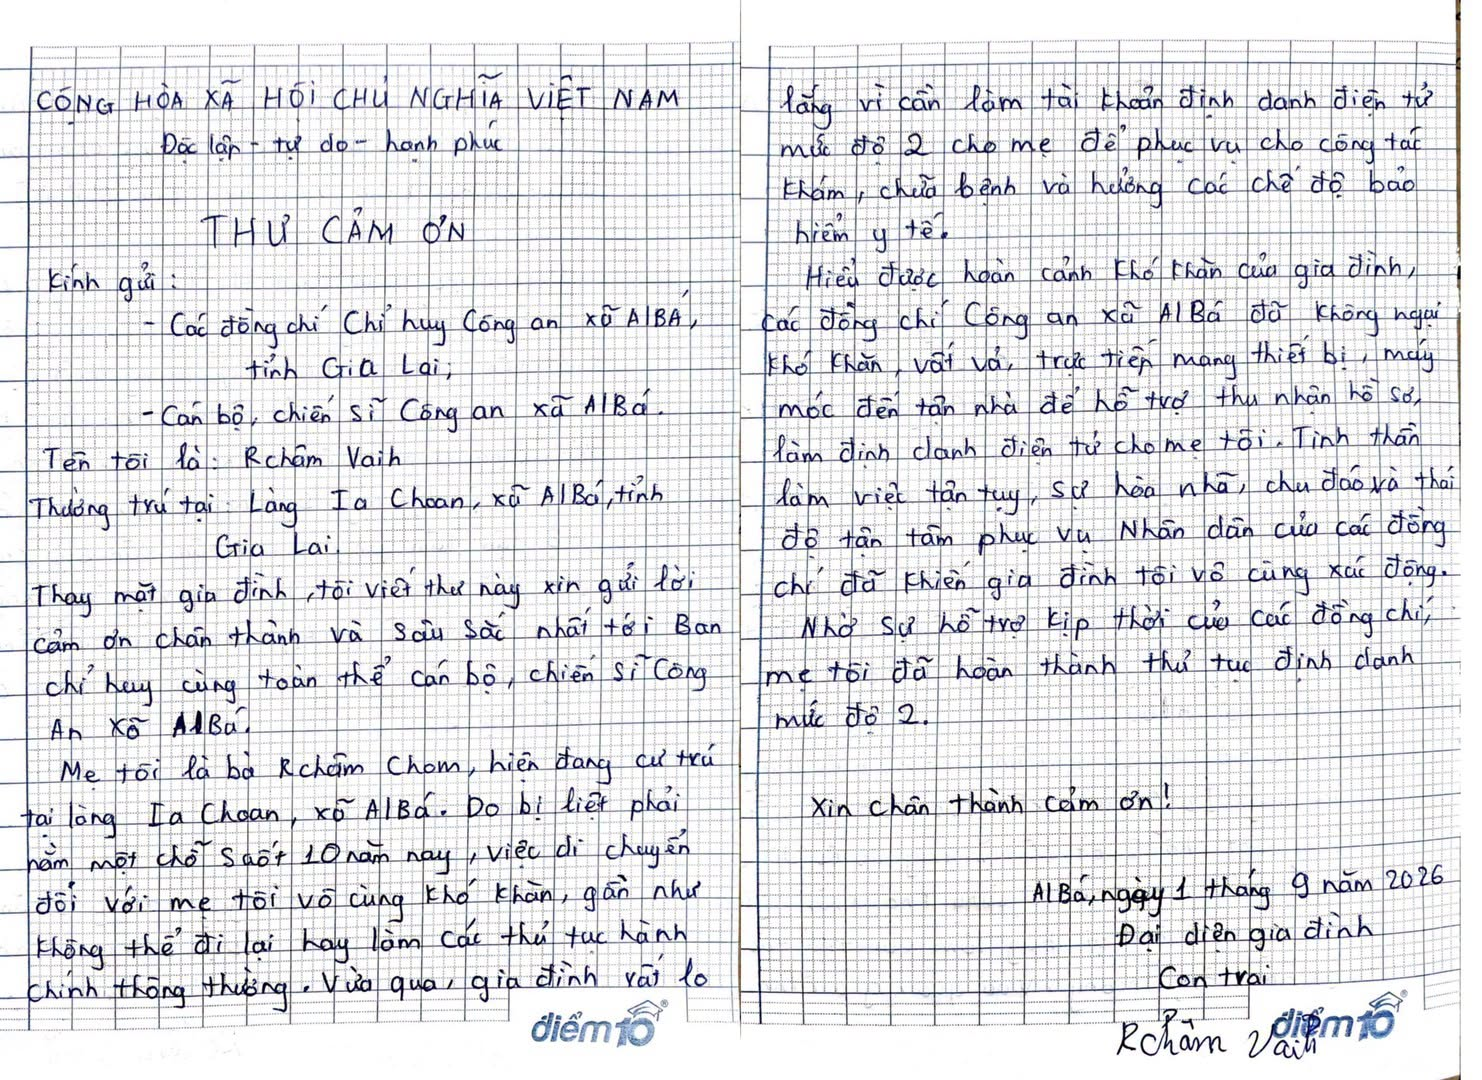 CỘNG HÒA XÃ HỘI CHỦ NGHĨA VIỆT NAM
Độc lập - tự do - hạnh phúc
THƯ CẢM ƠN
Kính gửi :
- Các đồng chí Chỉ huy Công an xã AlBÁ,
tỉnh Gia Lai;
- Cán bộ, chiến sĩ Công an xã AlBá.
Tên tôi là: Rchăm Vaih
Thường trú tại: Làng Ia Choan, xã AlBá, tỉnh
Gia Lai.
Thay mặt gia đình, tôi viết thư này xin gửi lời
cảm ơn chân thành và sâu sắc nhất tới Ban
chỉ huy cùng toàn thể cán bộ, chiến sĩ Công
An xã AlBá.
Mẹ tôi là bà Rchăm Chom, hiện đang cư trú
tại làng Ia Choan, xã AlBá. Do bị liệt phải
nằm một chỗ suốt 10 năm nay, việc di chuyển
đối với mẹ tôi vô cùng khó khăn, gần như
không thể đi lại hay làm các thủ tục hành
chính thông thường. Vừa qua, gia đình rất lo
điểm10
lắng vì cần làm tài khoản định danh điện tử
mức độ 2 cho mẹ để phục vụ cho công tác
khám, chữa bệnh và hưởng các chế độ bảo
hiểm y tế.
Hiểu được hoàn cảnh khó khăn của gia đình,
các đồng chí Công an xã AlBá đã không ngại
khó khăn, vất vả, trực tiếp mang thiết bị, máy
móc đến tận nhà để hỗ trợ thu nhận hồ sơ,
làm định danh điện tử cho mẹ tôi. Tinh thần
làm việc tận tụy, sự hòa nhã, chu đáo và thái
độ tận tâm phục vụ Nhân dân của các đồng
chí đã khiến gia đình tôi vô cùng xúc động.
Nhờ sự hỗ trợ kịp thời của các đồng chí,
mẹ tôi đã hoàn thành thủ tục định danh
mức độ 2.
Xin chân thành cảm ơn!
AlBá, ngày 1 tháng 9 năm 2026
Đại diện gia đình
Con trai
điểm10
Rchăm Vaih